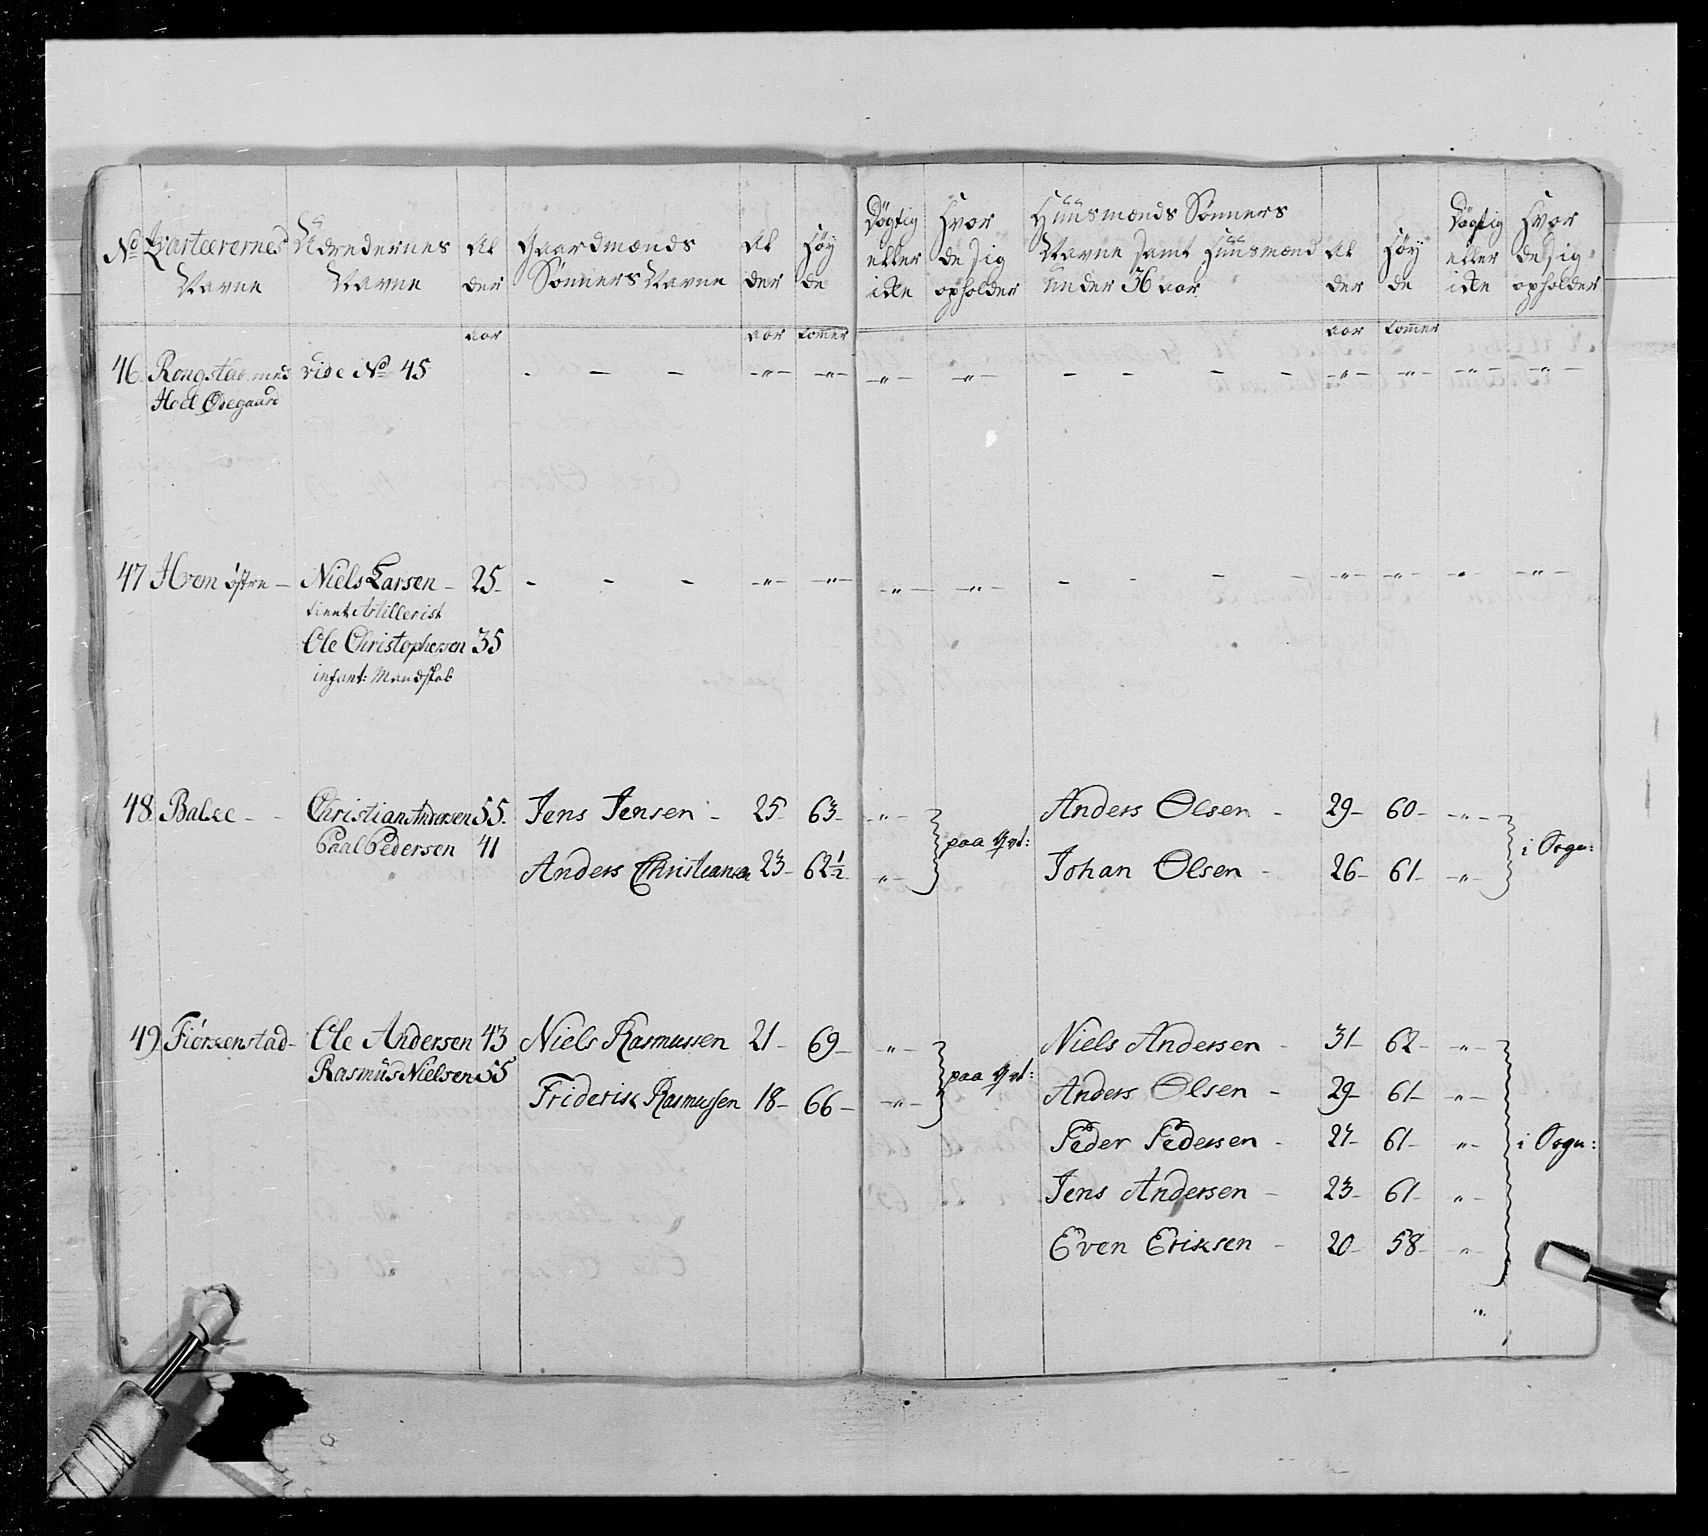 No Qvarteerernes Navne
Brødernes Navne
Al der
Gaardmænds Sønners Navne
Al der
Høy de
Dögtig eller ikke
Hvor de Sig opholder
Huusmænds Sønners Navne Samt Huusmænd under 36 aar
Al der
Høy de
Dögtig eller ikke
Hvor de Sig opholder
aar aar tommer aar tommer
46. Rongstad med vide No 45 - - - -"- -"- -"- -"- - - - - -"- -"- -"- -"-
Hoel Ødegaard
47 Hvem østre - Niels Larsen - 25 - - - -"- -"- -"- -"- - - - - -"- -"- -"- -"-
tient Artillerist
Ole Christophersen 35
infant: Mandskab
48. Balke - - Christian Andersen 55. Jens Jensen - 25 63- -"- paa Qvt: Anders Olsen - 29- 60- -"- i Sogn:
Paal Pedersen 41
Anders Christiansen 23- 62½ -"- Johan Olsen - 26- 61- -"-
49. Fiörkenstad- Ole Andersen 43 Niels Rasmussen 21- 69- -"- paa Qvt: Niels Andersen - 31- 62- -"-
Rasmus Nielsen 55
Friderik Rasmussen 18- 66- -"- Anders Olsen - 29- 61- -"-
Peder Pedersen - 27- 61- -"- i Sogn:
Jens Andersen - 23- 61- -"-
Even Eriksen - 20- 58- -"-